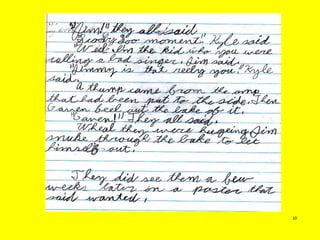 "Jim!" they all said.
"Scooby Doo moment." Kyle said.
"Well I'm the kid who you were
calling a bad singer. Jim said.
"Jimmy is that reely you." Kyle
said.
A thump came from the amp
that had been put to the side. Then
Gaven feel out the bake of it.
"Gaven!" They all said.
Wheal they were hugeing Jim
snuke through the bake to let
himself out.
They did see them a few
weeks later on a poster that
said wanted.
10